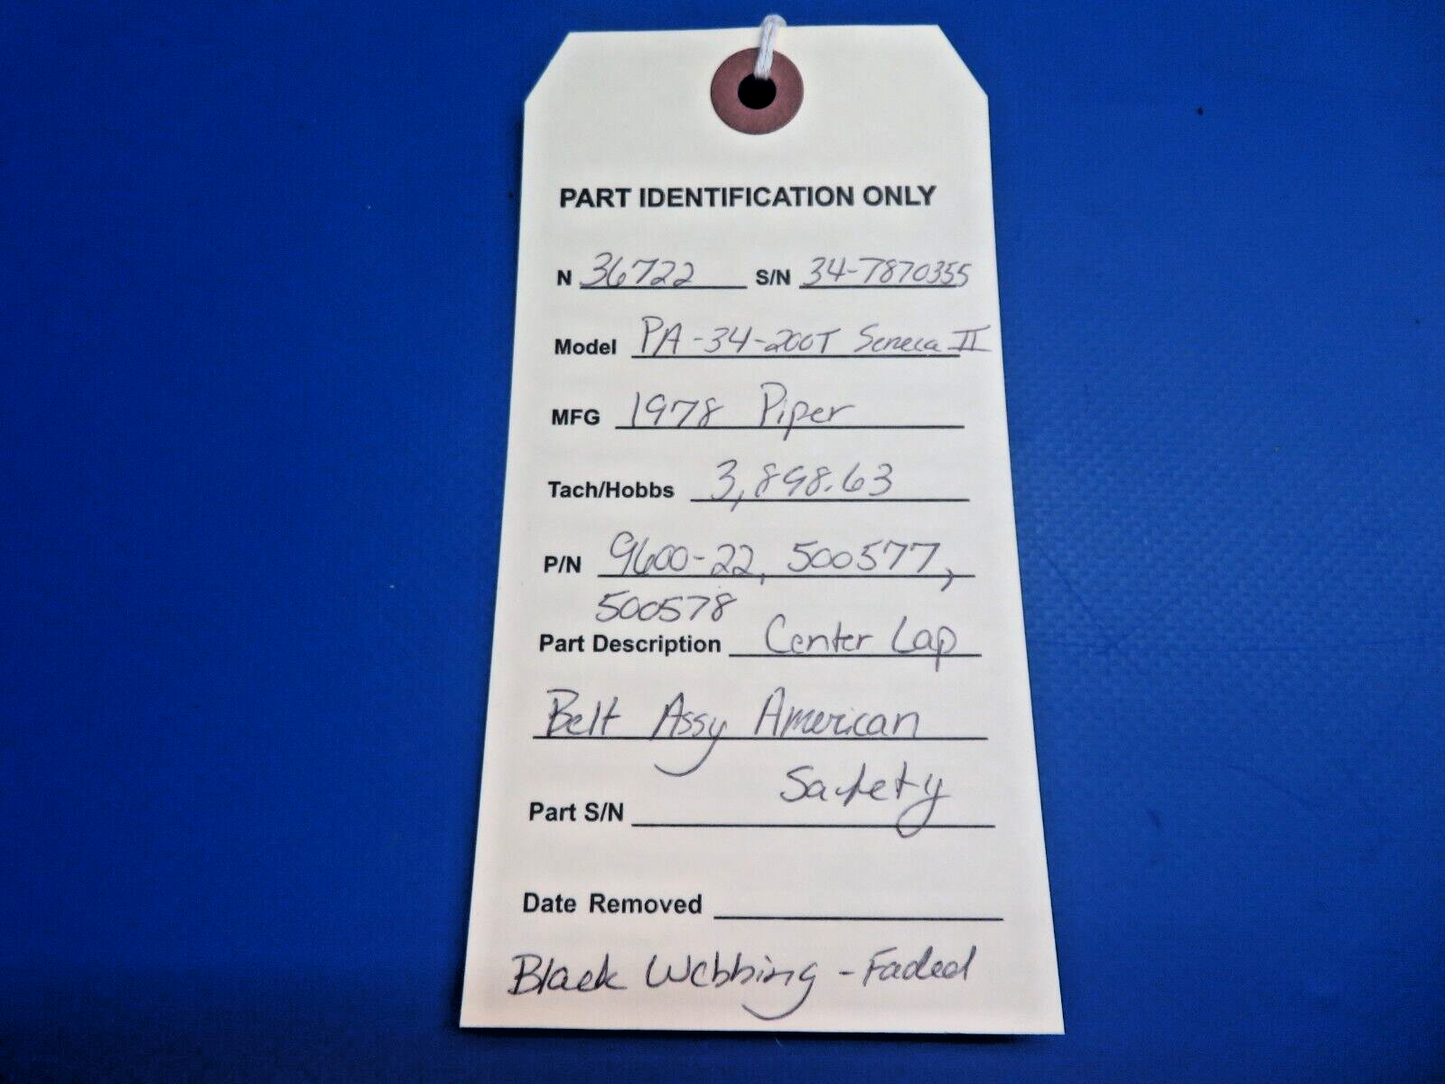 PART IDENTIFICATION ONLY
N 36722 S/N 34-7870355
Model PA-34-200T Seneca II
MFG 1978 Piper
Tach/Hobbs 3,898.63
P/N 9600-22, 500577,
500578
Part Description Center Lap
Belt Assy American
Safety
Part S/N
Date Removed
Black Webbing - Faded